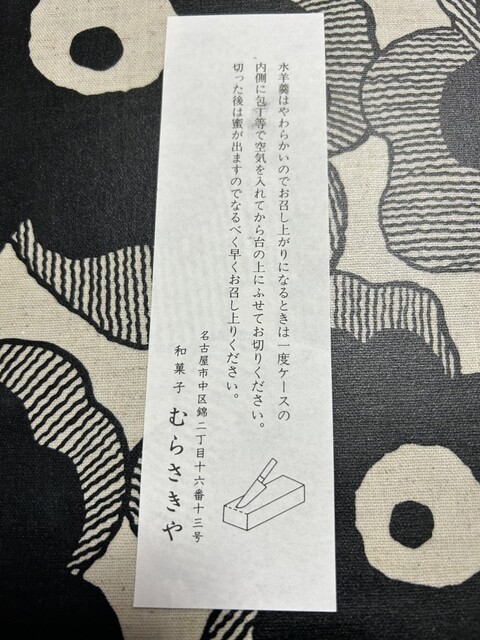 水羊羹はやわらかいのでお召し上がりになるときは一度ケースの
内側に包丁等で空気を入れてから台の上にふせてお切りください。
切った後は蜜が出ますのでなるべく早くお召し上りください。
名古屋市中区錦二丁目十六番十三号
和菓子 むらさきや